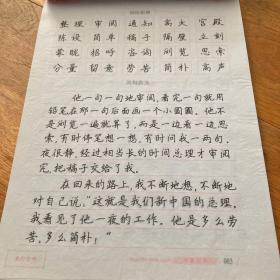 整理 审阅 通知 高大 宫殿
陈设 简单 稿子 隔壁 立刻
蒙眬 招呼 咨询 浏览 思索
分量 留意 劳苦 简朴 高声
他一句一句地审阅，看完一句就用
铅笔在那一句后面画一个小圆圈。他不
是浏览一遍就算了，而是一边看一边思
索，有时停笔想一想，有时问我一两句。
夜很静，经过相当长的时间总理才审阅
完，把稿子交给了我。
在回来的路上，我不断地想，不断地
对自己说，“这就是我们新中国的总理，
我看见了他一夜的工作。他是多么劳
苦，多么简朴！”